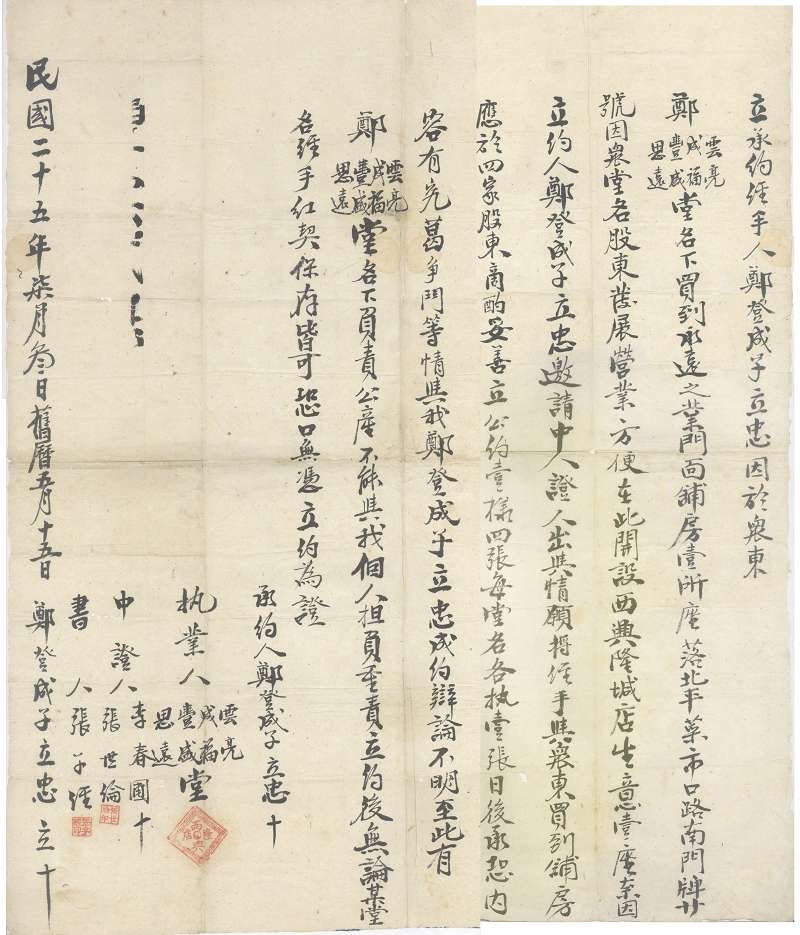 立承約經手人鄭登成子立忠因於衆東
鄭雲亮成福豐盛思遠堂名下買到永遠之業門面鋪房壹所座落北平菜市口路南門牌廿
號因衆堂名股東發展營業方便在此開設西興隆堿店生意壹座茲因
立約人鄭登成子立忠邀請中人證人出與情願將經手與衆東買到鋪房
應於四家股東商酌妥善立公約壹樣四張每堂名各执壹張日後承恕内
容有充葛爭鬥等情與我鄭登成子立忠成約辯論不明至此有
鄭雲亮成福豐盛思遠堂名下負責公産不能與我個人担負重責立約後無論某堂
名經手紅契保存皆可恐口無憑立約為證
承約人鄭登成子立忠十
执業人雲亮成福豐盛思遠堂
中證人李春圃十
張世倫
書人張子經
民國二十五年柒月叁日舊曆五月十五日 鄭登成子立忠立十